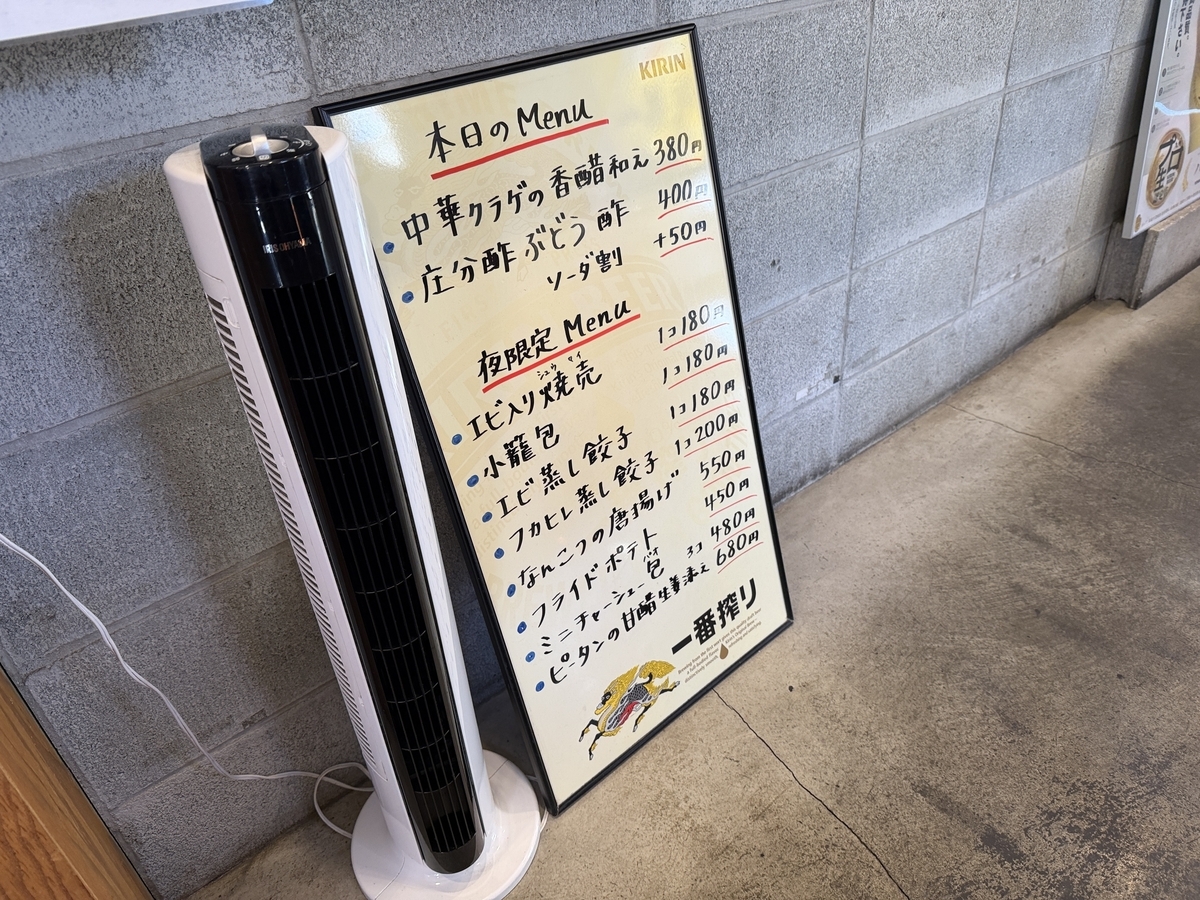 KIRIN
本日のMenu
中華クラゲの香醋和え 380円
庄分酢ぶどう酢 400円
ソーダ割 +50円
夜限定 Menu
エビ入り焼売 1コ180円
シュウマイ
小籠包 1コ180円
エビ蒸し餃子 1コ180円
フカヒレ蒸し餃子 1コ200円
なんこつの唐揚げ 550円
フライドポテト 450円
ミニチャーシュー包 3コ 480円
パオ
ピータンの甘醋生姜添え 680円
一番搾り
IRIS OHYAMA